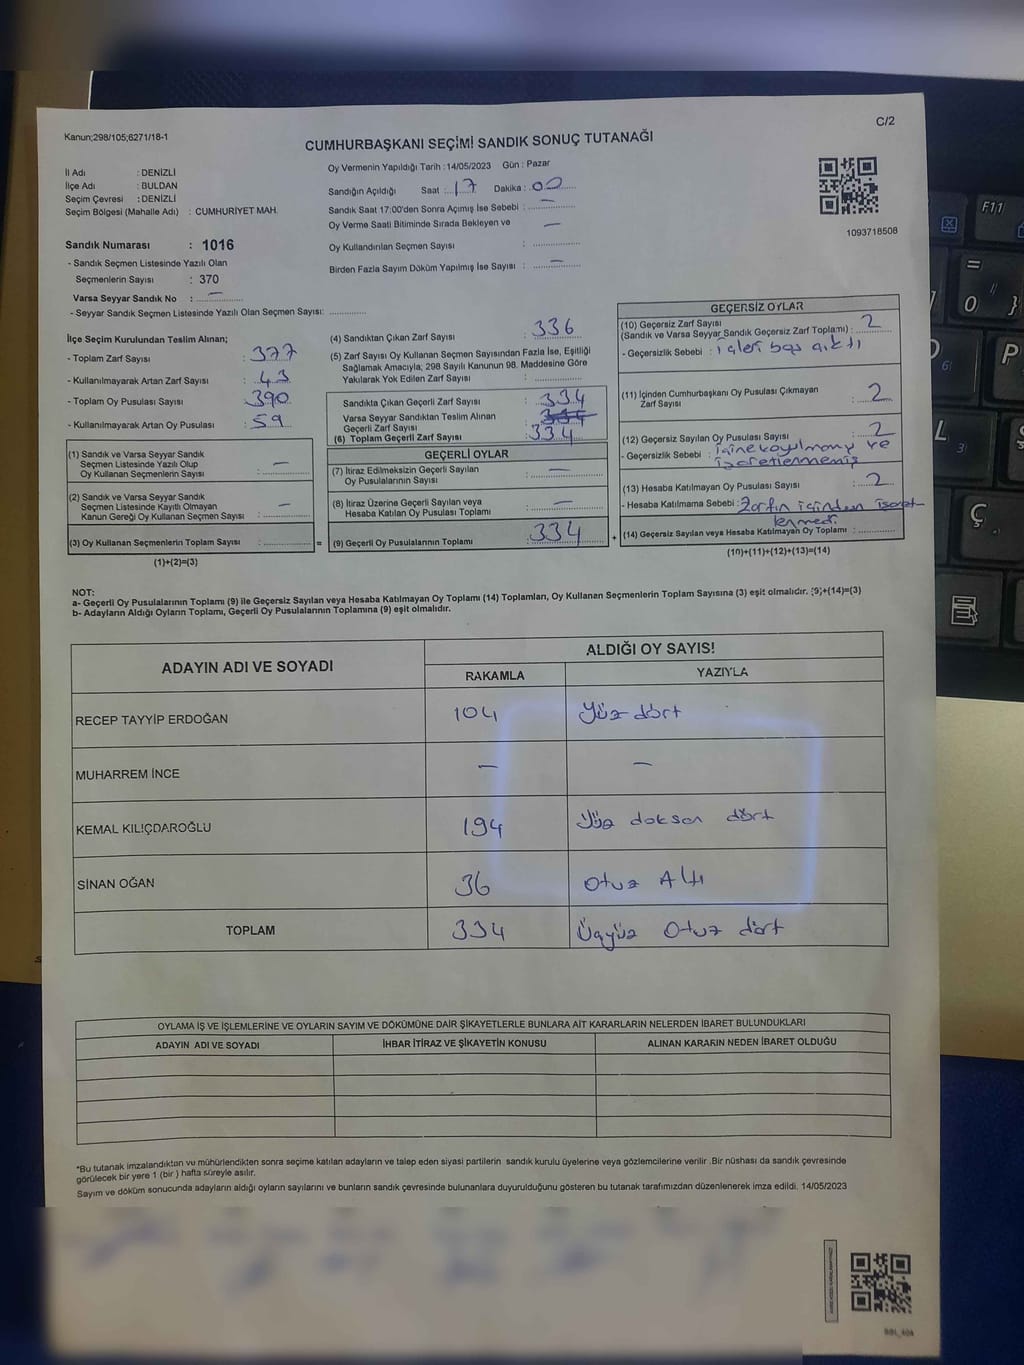 Kanun;298/105;6271/18-1
C/2
CUMHURBAŞKANI SEÇİMİ SANDIK SONUÇ TUTANAĞI
İl Adı : DENİZLİ
İlçe Adı : BULDAN
Seçim Çevresi : DENİZLİ
Seçim Bölgesi (Mahalle Adı) : CUMHURİYET MAH.
Sandık Numarası : 1016
- Sandık Seçmen Listesinde Yazılı Olan
Seçmenlerin Sayısı : 370
Varsa Seyyar Sandık No : –
- Seyyar Sandık Seçmen Listesinde Yazılı Olan Seçmen Sayısı: ................
Oy Vermenin Yapıldığı Tarih : 14/05/2023 Gün : Pazar
Sandığın Açıldığı Saat : 17 Dakika : 00
Sandık Saat 17:00'den Sonra Açımış İse Sebebi : –
Oy Verme Saati Bitiminde Sırada Bekleyen ve –
Oy Kullandırılan Seçmen Sayısı : ............
Birden Fazla Sayım Döküm Yapılmış İse Sayısı : –
1093718508
İlçe Seçim Kurulundan Teslim Alınan;
- Toplam Zarf Sayısı : 377
- Kullanılmayarak Artan Zarf Sayısı : 43
- Toplam Oy Pusulası Sayısı : 390
- Kullanılmayarak Artan Oy Pusulası : 59
(1) Sandık ve Varsa Seyyar Sandık
Seçmen Listesinde Yazılı Olup
Oy Kullanan Seçmenlerin Sayısı : –
(2) Sandık ve Varsa Seyyar Sandık
Seçmen Listesinde Kayıtlı Olmayan
Kanun Gereği Oy Kullanan Seçmen Sayısı : –
(3) Oy Kullanan Seçmenlerin Toplam Sayısı : ............ =
(1)+(2)=(3)
(4) Sandıktan Çıkan Zarf Sayısı : 336
(5) Zarf Sayısı Oy Kullanan Seçmen Sayısından Fazla İse, Eşitliği
Sağlamak Amacıyla; 298 Sayılı Kanunun 98. Maddesine Göre
Yakılarak Yok Edilen Zarf Sayısı : ............
Sandıkta Çıkan Geçerli Zarf Sayısı : 334
Varsa Seyyar Sandıktan Teslim Alınan
Geçerli Zarf Sayısı : 334
(6) Toplam Geçerli Zarf Sayısı : 334
GEÇERLİ OYLAR
(7) İtiraz Edilmeksizin Geçerli Sayılan
Oy Pusulalarının Sayısı : –
(8) İtiraz Üzerine Geçerli Sayılan veya
Hesaba Katılan Oy Pusulası Toplamı : –
(9) Geçerli Oy Pusulalarının Toplamı : 334 +
GEÇERSİZ OYLAR
(10) Geçersiz Zarf Sayısı
(Sandık ve Varsa Seyyar Sandık Geçersiz Zarf Toplamı) : 2
- Geçersizlik Sebebi : içleri boş çıktı
(11) İçinden Cumhurbaşkanı Oy Pusulası Çıkmayan
Zarf Sayısı : 2
(12) Geçersiz Sayılan Oy Pusulası Sayısı : 2
- Geçersizlik Sebebi : ve
işaretlenmemiş
(13) Hesaba Katılmayan Oy Pusulası Sayısı : 2
- Hesaba Katılmama Sebebi : Zarfın içinden işaret
lenmedi
(14) Geçersiz Sayılan veya Hesaba Katılmayan Oy Toplamı : ............
(10)+(11)+(12)+(13)=(14)
NOT:
a- Geçerli Oy Pusulalarının Toplamı (9) ile Geçersiz Sayılan veya Hesaba Katılmayan Oy Toplamı (14) Toplamları, Oy Kullanan Seçmenlerin Toplam Sayısına (3) eşit olmalıdır. (9)+(14)=(3)
b- Adayların Aldığı Oyların Toplamı, Geçerli Oy Pusulalarının Toplamına (9) eşit olmalıdır.
ADAYIN ADI VE SOYADI
ALDIĞI OY SAYISI
RAKAMLA YAZIYLA
RECEP TAYYİP ERDOĞAN 104 Yüz dört
MUHARREM İNCE – –
KEMAL KILIÇDAROĞLU 194 Yüz doksan dört
SİNAN OĞAN 36 Otuz Altı
TOPLAM 334 Üçyüz Otuz dört
OYLAMA İŞ VE İŞLEMLERİNE VE OYLARIN SAYIM VE DÖKÜMÜNE DAİR ŞİKAYETLERLE BUNLARA AİT KARARLARIN NELERDEN İBARET BULUNDUKLARI
ADAYIN ADI VE SOYADI İHBAR İTİRAZ VE ŞİKAYETİN KONUSU ALINAN KARARIN NEDEN İBARET OLDUĞU
*Bu tutanak imzalandıktan ve mühürlendikten sonra seçime katılan adayların ve talep eden siyasi partilerin sandık kurulu üyelerine veya gözlemcilerine verilir .Bir nüshası da sandık çevresinde
görülecek bir yere 1 (bir ) hafta süreyle asılır.
Sayım ve döküm sonucunda adayların aldığı oyların sayılarını ve bunların sandık çevresinde bulunanlara duyurulduğunu gösteren bu tutanak tarafımızdan düzenlenerek imza edildi. 14/05/2023
F11